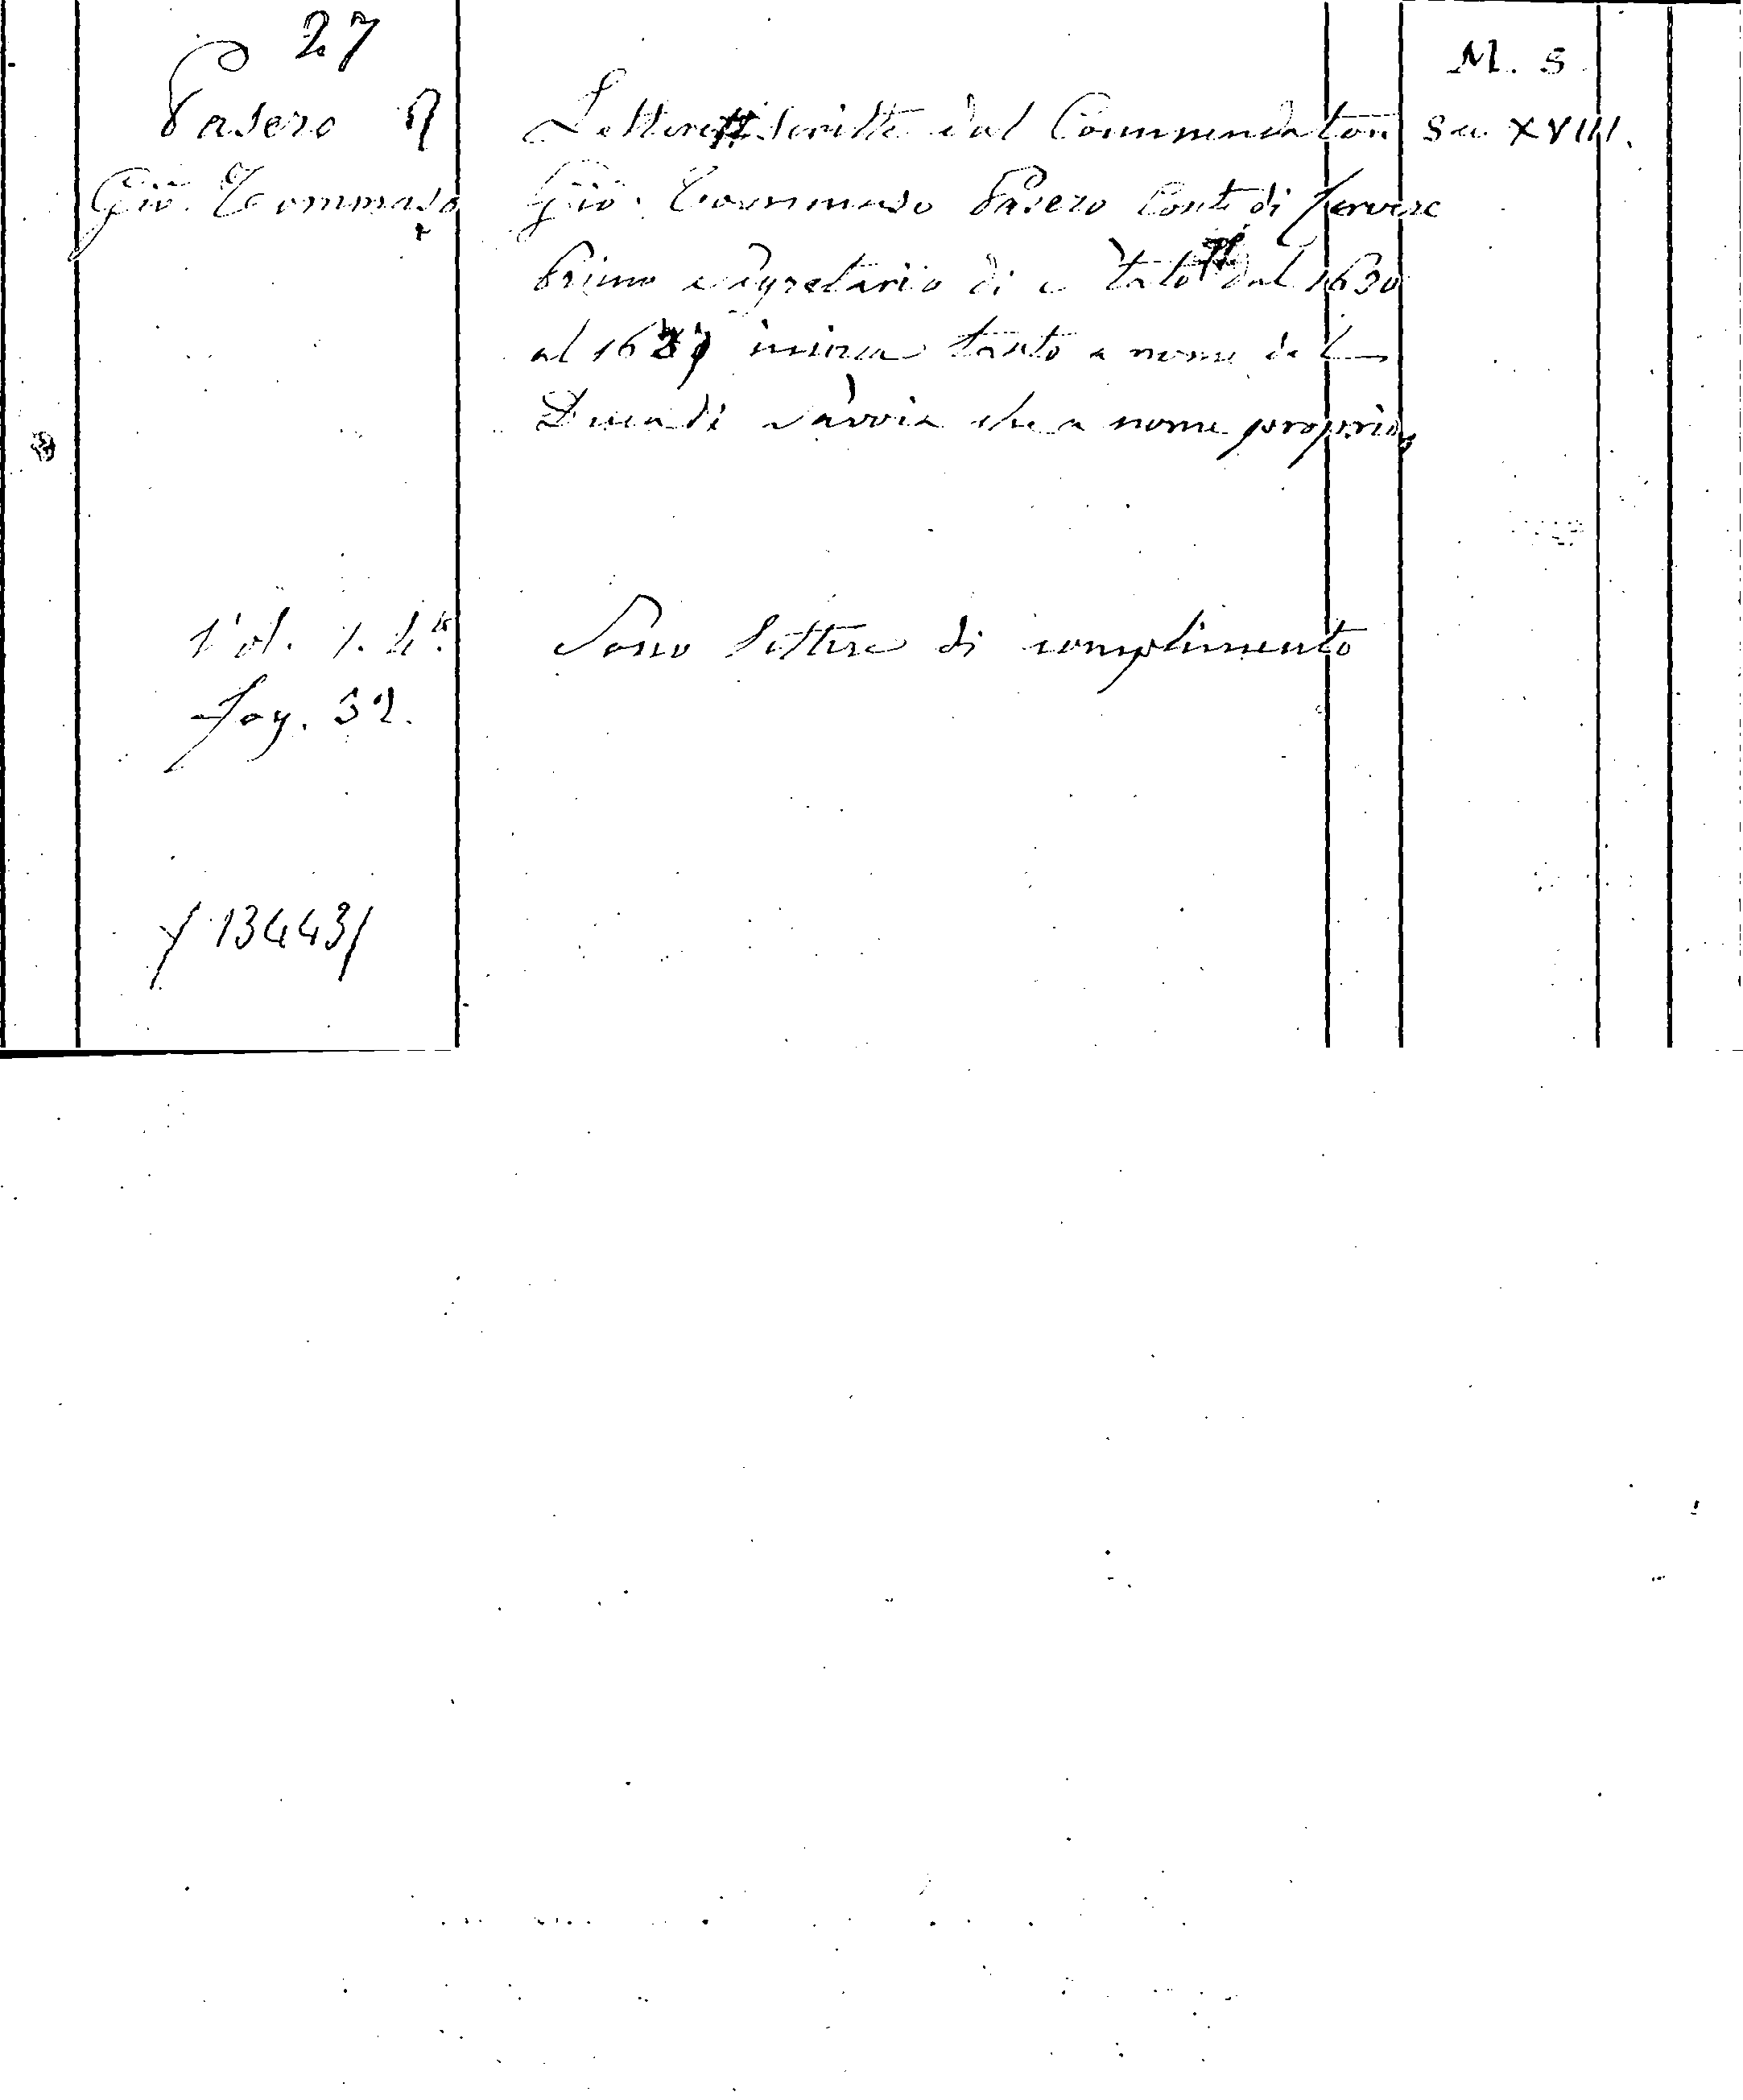 27
Pasero
Gio. Tommaso
Vol. 1. 4.º
fog. 32.
134431
Lettere scritte dal Commendatore
Gio. Tommaso Pasero Conte di Cervere
Primo Segretario di Stato dal 1630
al 1637 incirca tanto a nome del
Duca di Savoia che a nome proprio,
Sono lettere di complimento
M. S.
Sec XVIII.